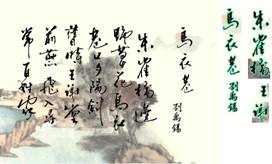 朱雀橋 王謝
烏衣巷
烏衣巷
劉禹錫
朱雀橋邊
野草花烏衣
巷口夕陽斜
舊時王謝堂
前燕飛入尋
常百姓家